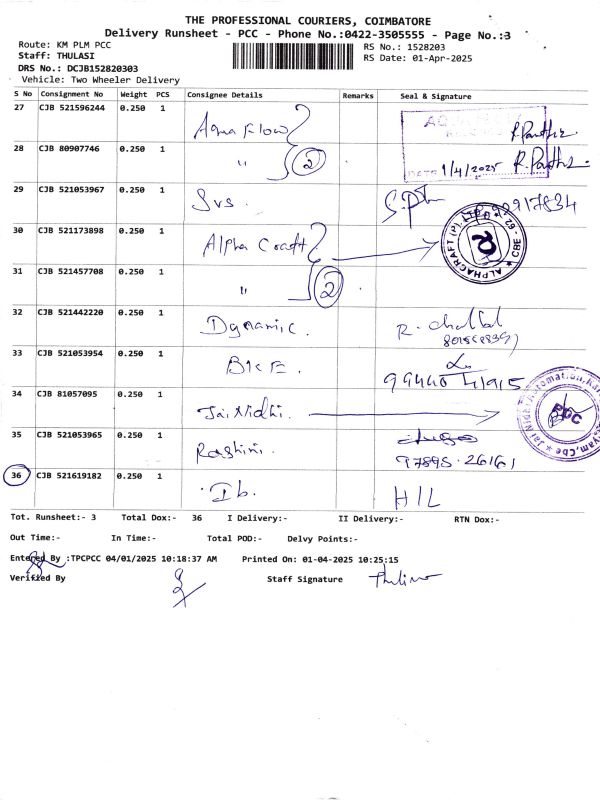 THE PROFESSIONAL COURIERS, COIMBATORE
Delivery Runsheet - PCC - Phone No.:0422-3505555 - Page No.:3
Route: KM PLM PCC
RS No.: 1528203
Staff: THULASI
RS Date: 01-Apr-2025
DRS No.: DCJB152820303
Vehicle: Two Wheeler Delivery
S No Consignment No Weight PCS Consignee Details Remarks Seal & Signature
27 CJB 521596244 0.250 1 Aqua Flow
28 CJB 80907746 0.250 1 " 2
DATE 1/4/2025
29 CJB 521053967 0.250 1 Svs.
30 CJB 521173898 0.250 1 Alpha Craft
ALPHACRAFT (P) LTD CBE
31 CJB 521457708 0.250 1 " 2
32 CJB 521442220 0.250 1 Dynamic.
33 CJB 521053954 0.250 1
34 CJB 81057095 0.250 1 Jai Nidhi.
35 CJB 521053965 0.250 1 Rashini.
97895.26161
36 CJB 521619182 0.250 1 Ib. H/L
Tot. Runsheet:- 3 Total Dox:- 36 I Delivery:- II Delivery:- RTN Dox:-
Out Time:- In Time:- Total POD:- Delvy Points:-
Entered By :TPCPCC 04/01/2025 10:18:37 AM Printed On: 01-04-2025 10:25:15
Verified By Staff Signature